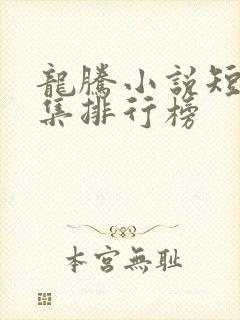 龍騰小說短
集排行榜
本宮無耻